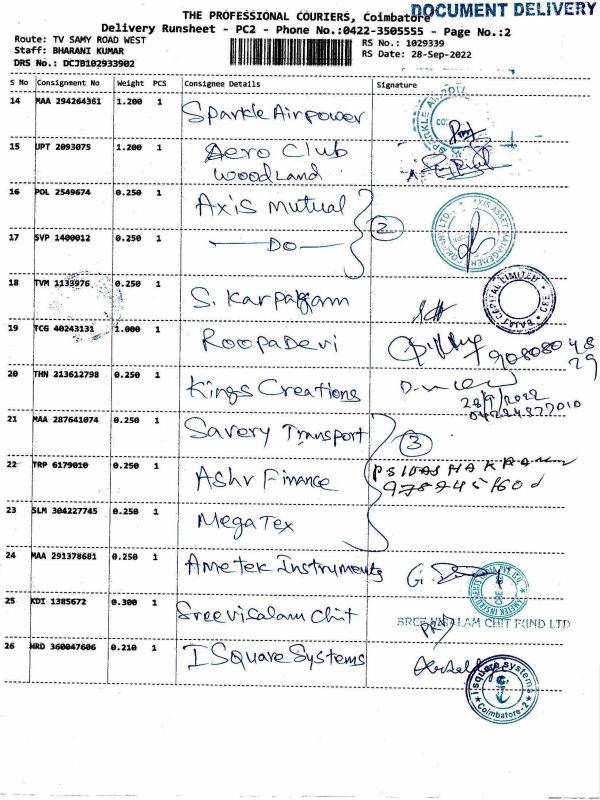 DOCUMENT DELIVERY
THE PROFESSIONAL COURIERS, Coimbatore
Delivery Runsheet - PC2 - Phone No.:0422-3505555 - Page No.:2
Route: TV SAMY ROAD WEST
RS No.: 1029339
Staff: BHARANI KUMAR
RS Date: 28-Sep-2022
DRS No.: DCJB102933902
S No Consignment No Weight PCS Consignee Details Signature
14 MAA 294264361 1.200 1 Sparkle Airpower
15 UPT 2093075 1.200 1 Aero Club
Woodland
16 POL 2549674 0.250 1 Axis Mutual
2
17 SVP 1400012 0.250 1 DO
18 TVM 1133976 0.250 1 S. Karpagam
BAJAJ CAPITAL LIMITED
19 TCG 40243131 1.000 1 RoopaDevi
20 THN 213612798 0.250 1 Kings Creations
28/9/2022
21 MAA 287641074 0.250 1 Savery Transport
3
22 TRP 6179010 0.250 1 Ashv Finance
23 SLM 304227745 0.250 1 MegaTex
24 MAA 291378681 0.250 1 Ametek Instruments
25 KDI 1385672 0.300 1 Sreevisalam Chit
SREE VISALAM CHIT FUND LTD
26 HRD 360047606 0.210 1 ISquare Systems
isquare systems
Coimbatore-2